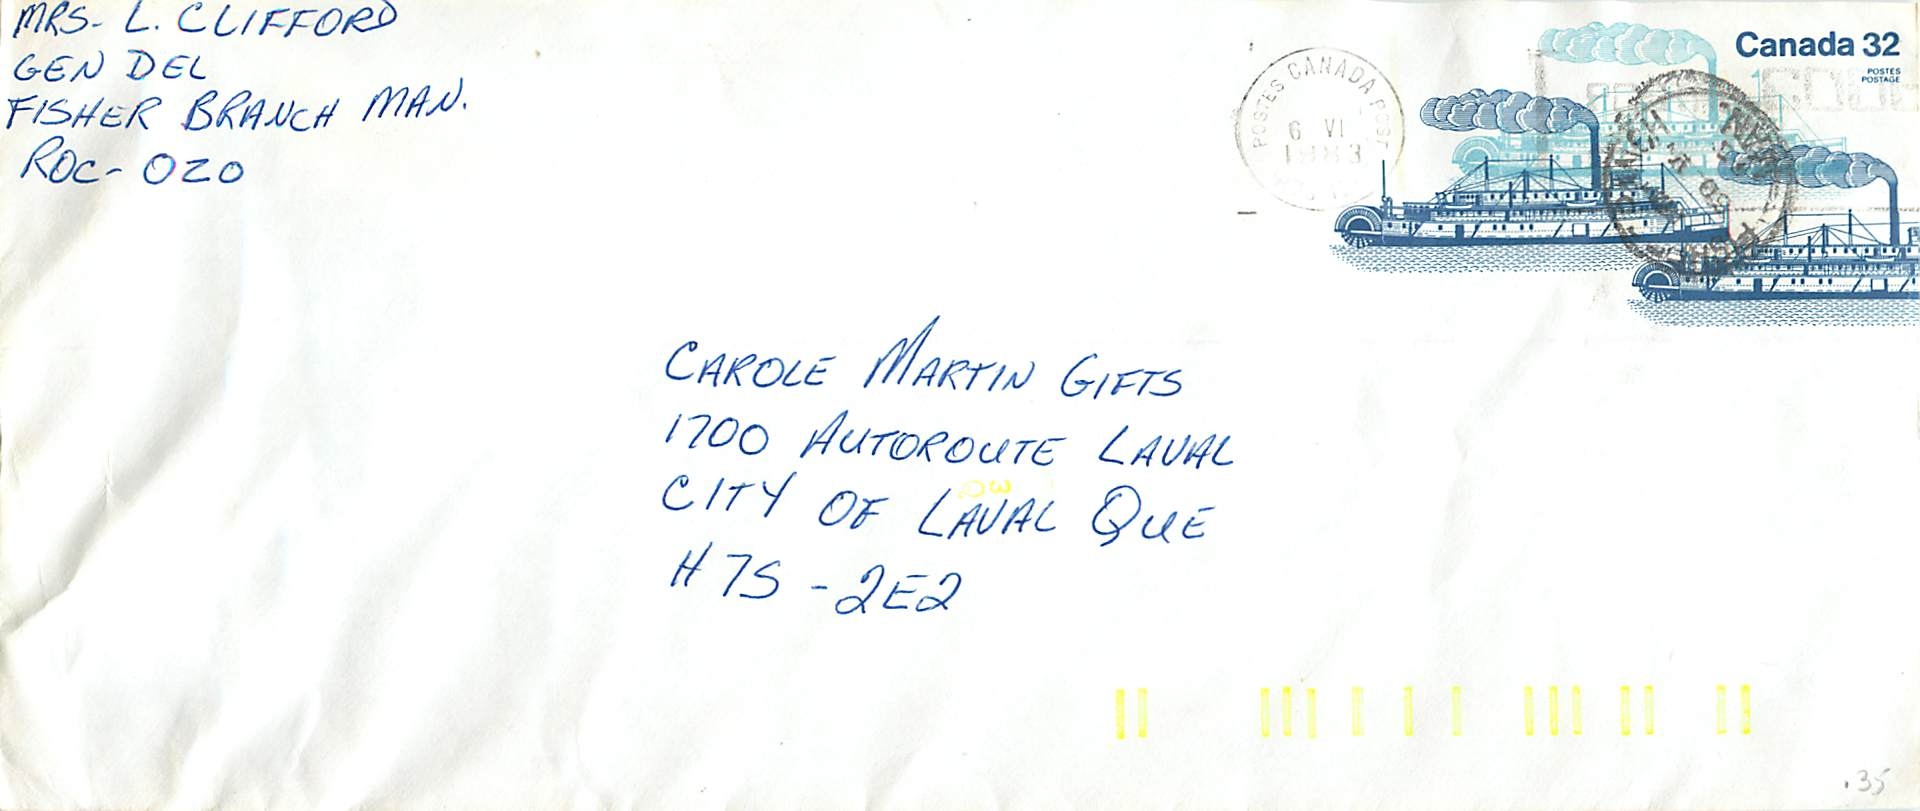 MRS- L. CLIFFORD
GEN DEL
FISHER BRANCH MAN.
ROC- OZO
Canada 32
POSTES
POSTAGE
POSTES CANADA POST
6 VI
1983
CAROLE MARTIN GIFTS
1700 AUTOROUTE LAVAL
CITY OF LAVAL QUE
H7S - 2E2
.35